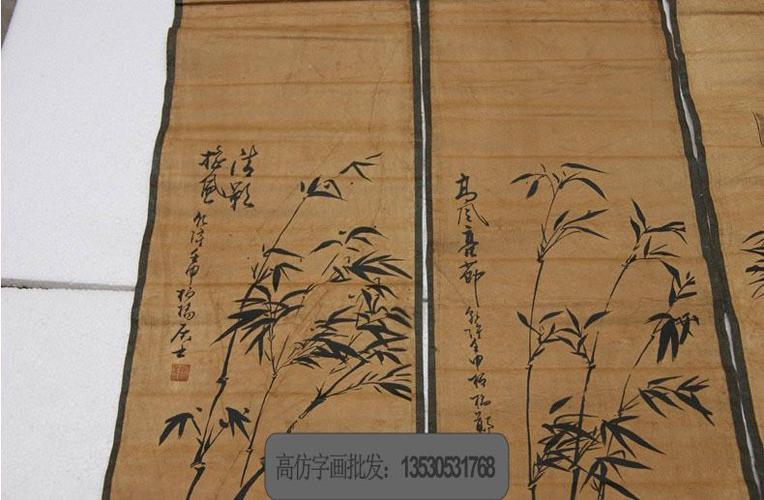 清影
搖風
乾隆壬申
板橋居士
高風亮節 乾隆壬申板橋鄭
高仿字画批发：13530531768